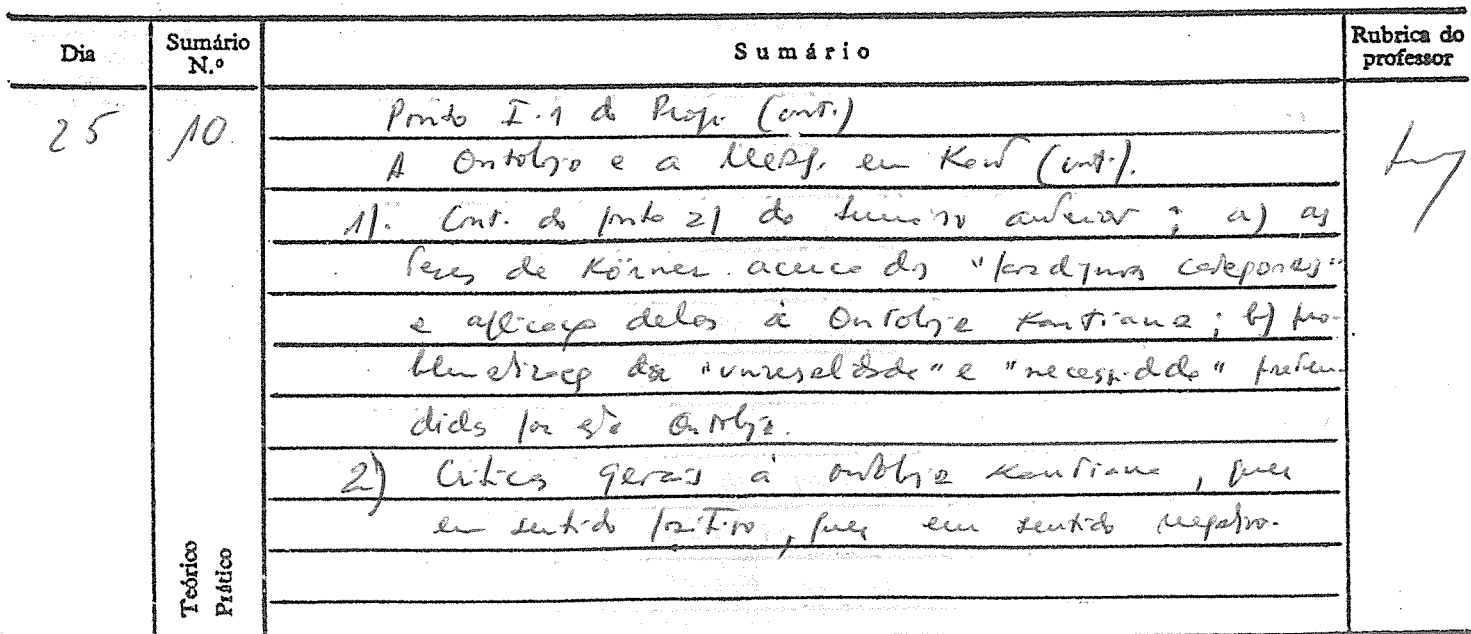 Dia
Sumário N.º
Sumário
Rubrica do professor
25
10.
Ponto I.1 do Prog. (cont.)
A Ontologia e a Metaf. em Kant (cont.).
1). Cont. do ponto 2) do sumário anterior: a) as
teses de Körner acerca dos "paradigmas categoriais"
e aplicação deles à Ontologia Kantiana; b) pro-
blematização da "universalidade" e "necessidade" preten-
didas por esta Ontologia.
2) Críticas gerais à ontologia Kantiana, quer
em sentido positivo, quer em sentido negativo.
Teórico
Prático